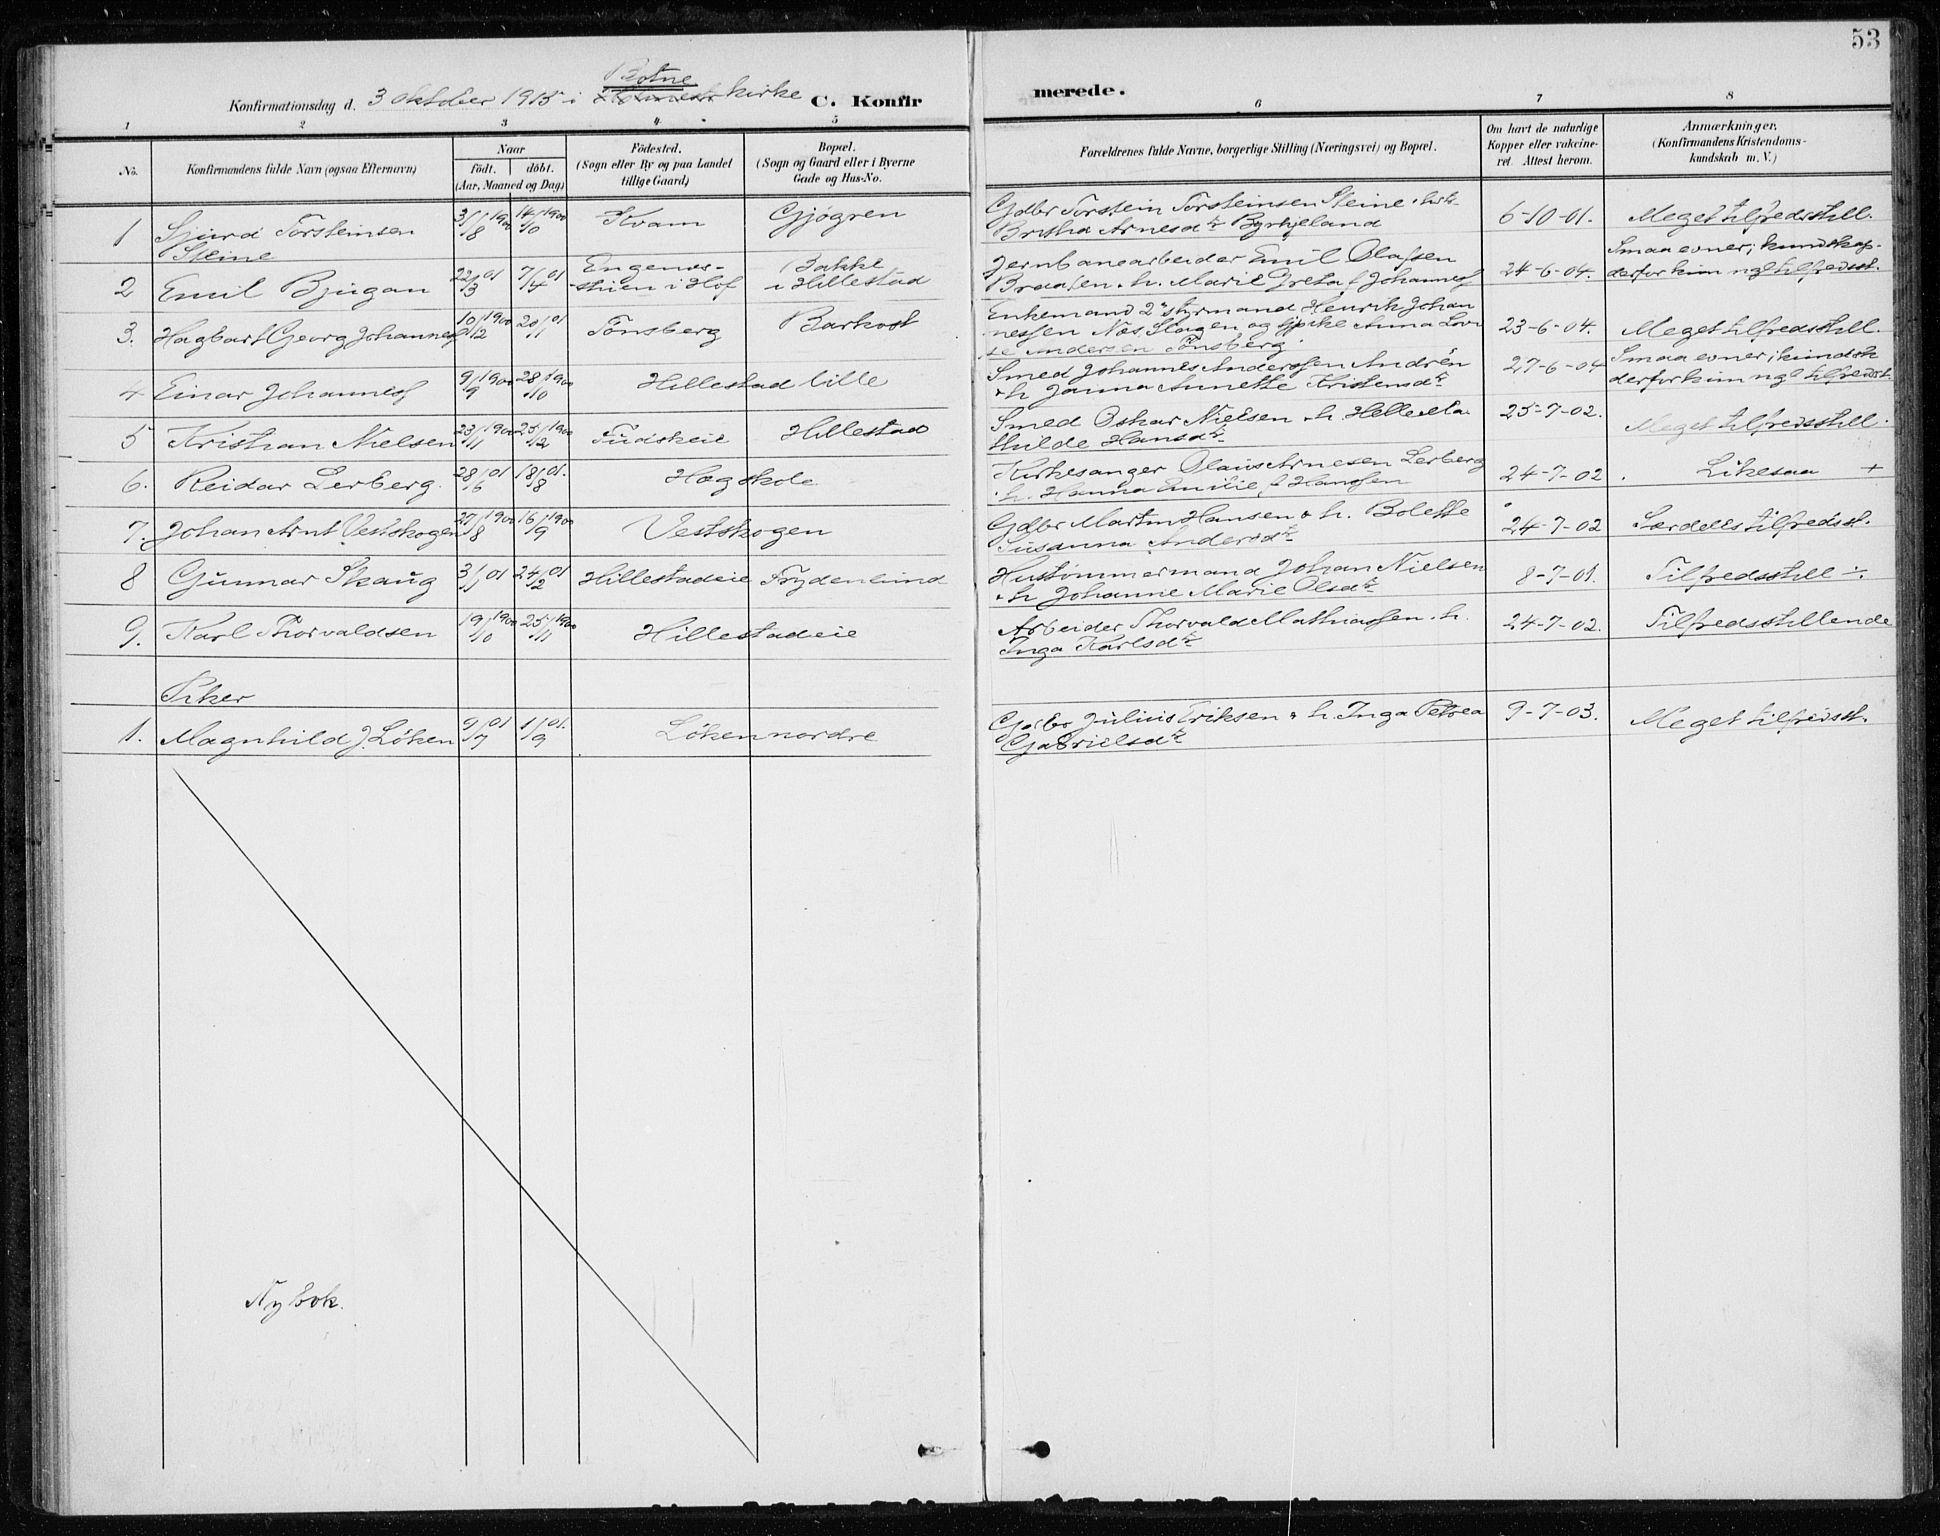 53
Konfirmationsdag d. 3 oktober 1915 i Botne kirke C. Konfir
merede.
1 2 3 4 5 6 7 8
No.
Konfirmandens fulde Navn (ogsaa Efternavn)
Naar
født. døbt.
(Aar, Maaned og Dag)
Fødested.
(Sogn eller By og paa Landet
tillige Gaard)
Bopæl.
(Sogn og Gaard eller i Byerne
Gade og Hus-No.
Forældrenes fulde Navne, borgerlige Stilling (Næringsvei) og Bopæl.
Om havt de naturlige
Kopper eller vakcine-
ret. Attest herom.
Anmærkninger.
(Konfirmandens Kristendoms-
kundskab m. V.)
1 Sjurd Torsteinsen
Steine
31/8 1900 14/10 1900 Kvam Gjøgren
Gdbr Torstein Torsteinsen Steine
Britha Arnesdtr Byrkjeland
6-10-01. Meget tilfredsstill.
2 Emil Bjugan 22/3 01 7/4 01
Engenes-
i Hof
Bakke
i Hillestad
Jernbanearbeider Emil Olafsen
Braaten. h. Marie Greta f Johannes
24-6-04.
Smaa evner; kundskap-
derfor kun ngl tilfredsst.
3. Hagbart Georg Johannes 10/12 1900 20/1 01 Tønsberg Barkost
Enkemand 2n styrmand Henrik Johan
nessen Næs Slagen og hjørke Anna Lovi
se Andersen Tønsberg.
23-6-04. Meget tilfredsstill.
4 Einar Johannes 9/9 1900 28/10 1900 Hillestad lille
Smed Johannes Anderssen Andrén
& h Janna Annette Kristensdtr
27-6-04
Smaa evner; kundsk
derfor kun ngl tilfredsst
5 Kristian Nielsen 23/11 1900 25/12 1900 Fudskeie Hillestad
Smed Oskar Nielsen & h. Helle Ma
thilde Hansdtr
25-7-02. Meget tilfredsstill.
6. Reidar Lerberg. 28/6 01 18/8 01. Hæg skole
Kirkesanger Olaus Arnesen Lerberg
& h. Hanna Emilie f Hanssen
24-7-02. Likesaa +
7. Johan Arnt Vestskogen 27/8 1900 16/9 1900 Vestskogen
Gdbr Martin Hansen & h. Bolette
Susanna Andersdtr
24-7-02 Særdeles tilfredsst.
8 Gunnar Skaug 3/1 01 24/2 01 Hillestadeie Frydenlund
Hustømmermand Johan Nielsen
& h Johanne Marie Olsdtr
8-7-01. Tilfredsstill ÷.
9. Karl Thorvaldsen 19/10 1900 25/11 1900 Hillestadeie
Arbeider Thorvald Mathiassen & h.
Inga Karlsdtr
24-7-02. Tilfredsstillende
Piker
1. Magnhild J. Løken 9/7 01 1/9 01. Løken nordre
Gdbr Julius Eriksen & h. Inga Petrea
Gabrielsdtr
9-7-03. Meget tilfredsst.
Ny bok.